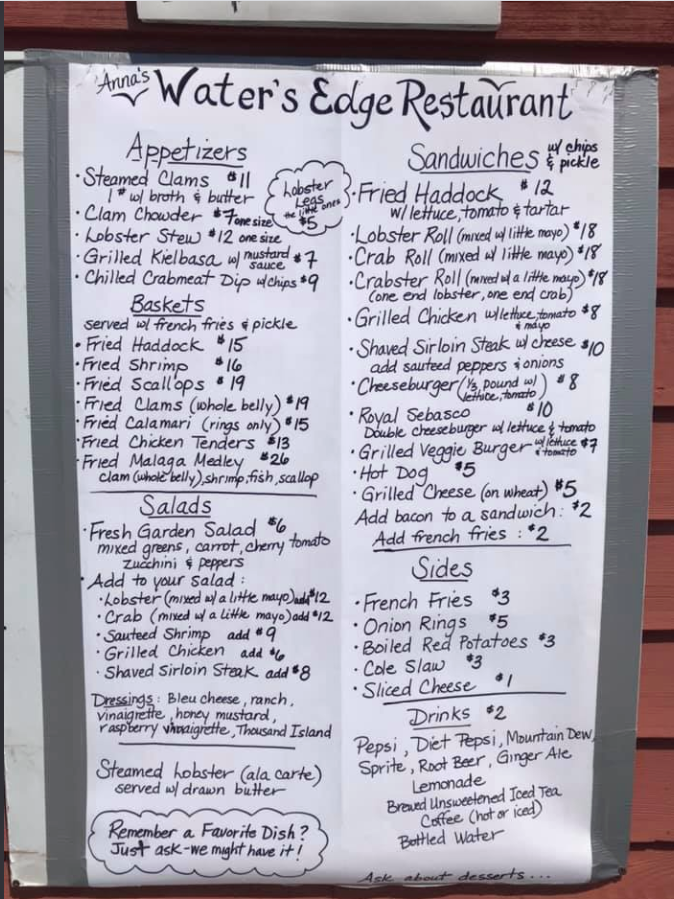 Anna's Water's Edge Restaurant
Appetizers
• Steamed Clams $11
1# w/ broth & butter
• Clam Chowder $7 one size
• Lobster Stew $12 one size
• Grilled Kielbasa w/ mustard sauce $7
• Chilled Crabmeat Dip w/chips $9
Lobster
Legs
the little ones
$5
Baskets
served w/ french fries & pickle
• Fried Haddock $15
• Fried Shrimp $16
• Fried Scallops $19
• Fried Clams (whole belly) $19
• Fried Calamari (rings only) $15
• Fried Chicken Tenders $13
• Fried Malaga Medley $26
clam (whole belly), shrimp, fish, scallop
Salads
• Fresh Garden Salad $6
mixed greens, carrot, cherry tomato
zucchini & peppers
• Add to your salad:
• Lobster (mixed w/ a little mayo) add $12
• Crab (mixed w/ a little mayo) add $12
• Sauteed Shrimp add $9
• Grilled Chicken add $6
• Shaved Sirloin Steak add $8
Dressings: Bleu cheese, ranch,
vinaigrette, honey mustard,
raspberry vinaigrette, Thousand Island
Steamed Lobster (ala carte)
served w/ drawn butter
Remember a Favorite Dish?
Just ask-we might have it!
Sandwiches w/ chips & pickle
• Fried Haddock $12
w/ lettuce, tomato & tartar
• Lobster Roll (mixed w/ little mayo) $18
• Crab Roll (mixed w/ little mayo) $18
• Crabster Roll (mixed w/ a little mayo) $18
(one end lobster, one end crab)
• Grilled Chicken w/ lettuce, tomato & mayo $8
• Shaved Sirloin Steak w/ cheese $10
add sauteed peppers & onions
• Cheeseburger (1/3 pound w/ lettuce, tomato) $8
• Royal Sebasco $10
Double cheeseburger w/ lettuce & tomato
• Grilled Veggie Burger w/ lettuce & tomato $7
• Hot Dog $5
• Grilled Cheese (on wheat) $5
Add bacon to a sandwich: $2
Add french fries: $2
Sides
• French Fries $3
• Onion Rings $5
• Boiled Red Potatoes $3
• Cole Slaw $3
• Sliced Cheese $1
Drinks $2
Pepsi, Diet Pepsi, Mountain Dew,
Sprite, Root Beer, Ginger Ale
Lemonade
Brewed Unsweetened Iced Tea
Coffee (hot or iced)
Bottled Water
Ask about desserts...